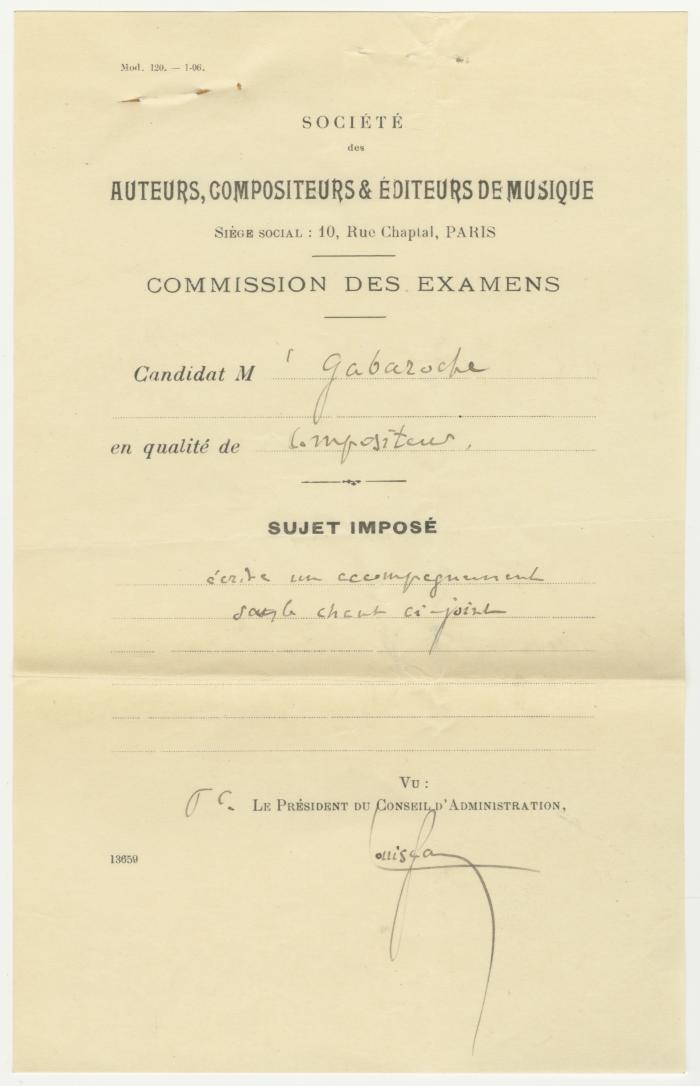 Mod. 120. — 1-06.
SOCIÉTÉ
des
AUTEURS, COMPOSITEURS & ÉDITEURS DE MUSIQUE
SIÈGE SOCIAL : 10, Rue Chaptal, PARIS
COMMISSION DES EXAMENS
Candidat M r Gabaroche
en qualité de Compositeur,
SUJET IMPOSÉ
écrire un accompagnement
le chant ci-joint
VU :
LE PRÉSIDENT DU CONSEIL D'ADMINISTRATION,
13659